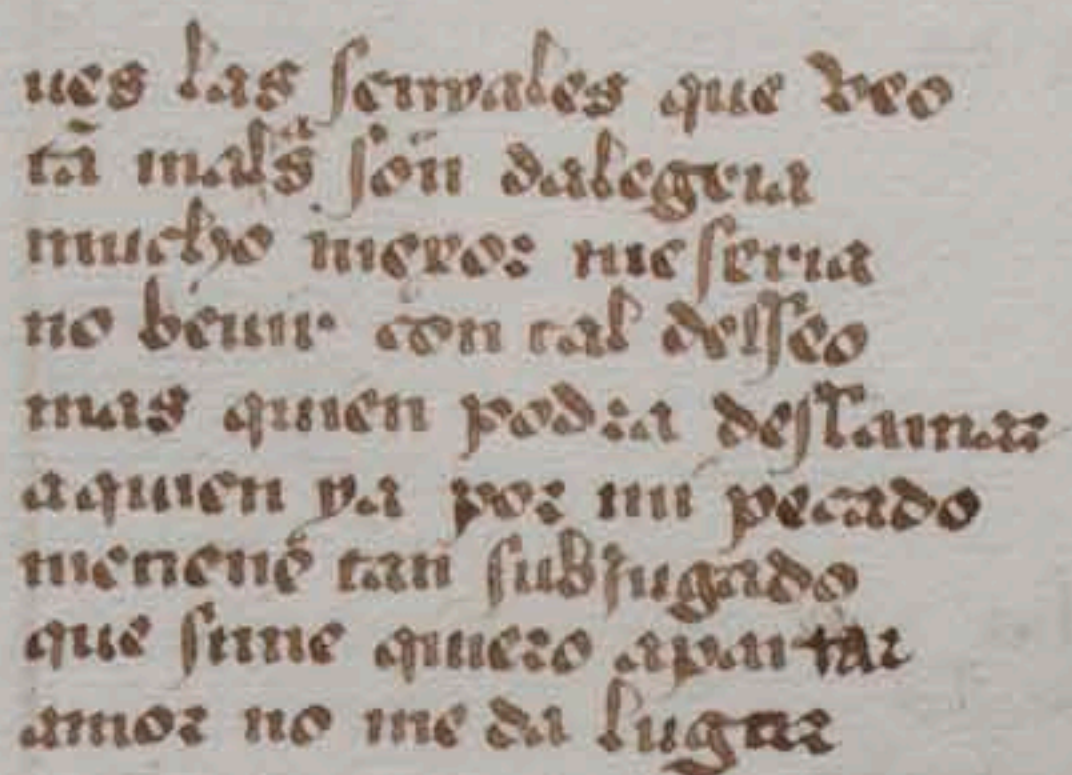 ues las sennales que veo
tã mals̃ son dalegria
mucho meyor me seria
no beuir con tal desseo
mas quien podria desTamar
aquien ya por mi pecado
menenẽ tan subjugado
que sime quiero apartar
amor no me da lugar